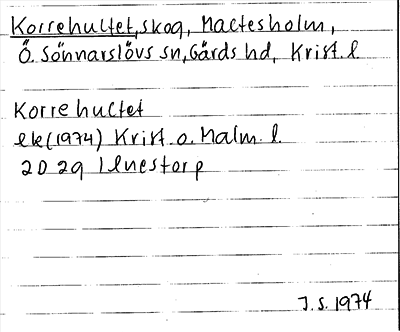 Korrehultet, skog, Maltesholm,
Ö. Sönnarslövs sn, Gärds hd, Krist. l.
Korrehultet
ek (1974) Krist. o. Malm. l.
2D 2g Ilnestorp
J.S. 1974